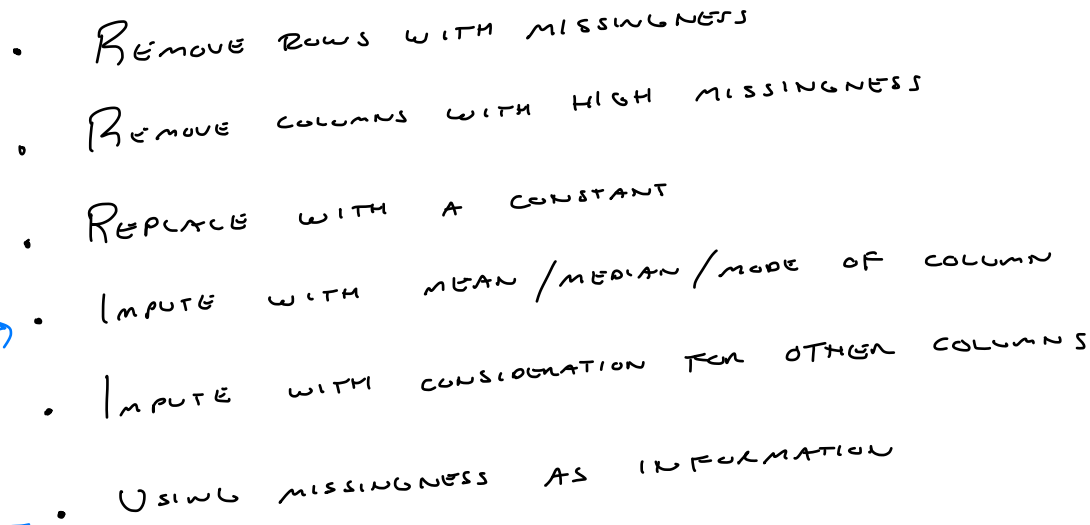 • REMOVE ROWS WITH MISSINGNESS
• REMOVE COLUMNS WITH HIGH MISSINGNESS
• REPLACE WITH A CONSTANT
• IMPUTE WITH MEAN/MEDIAN/MODE OF COLUMN
• IMPUTE WITH CONSIDERATION FOR OTHER COLUMNS
• USING MISSINGNESS AS INFORMATION